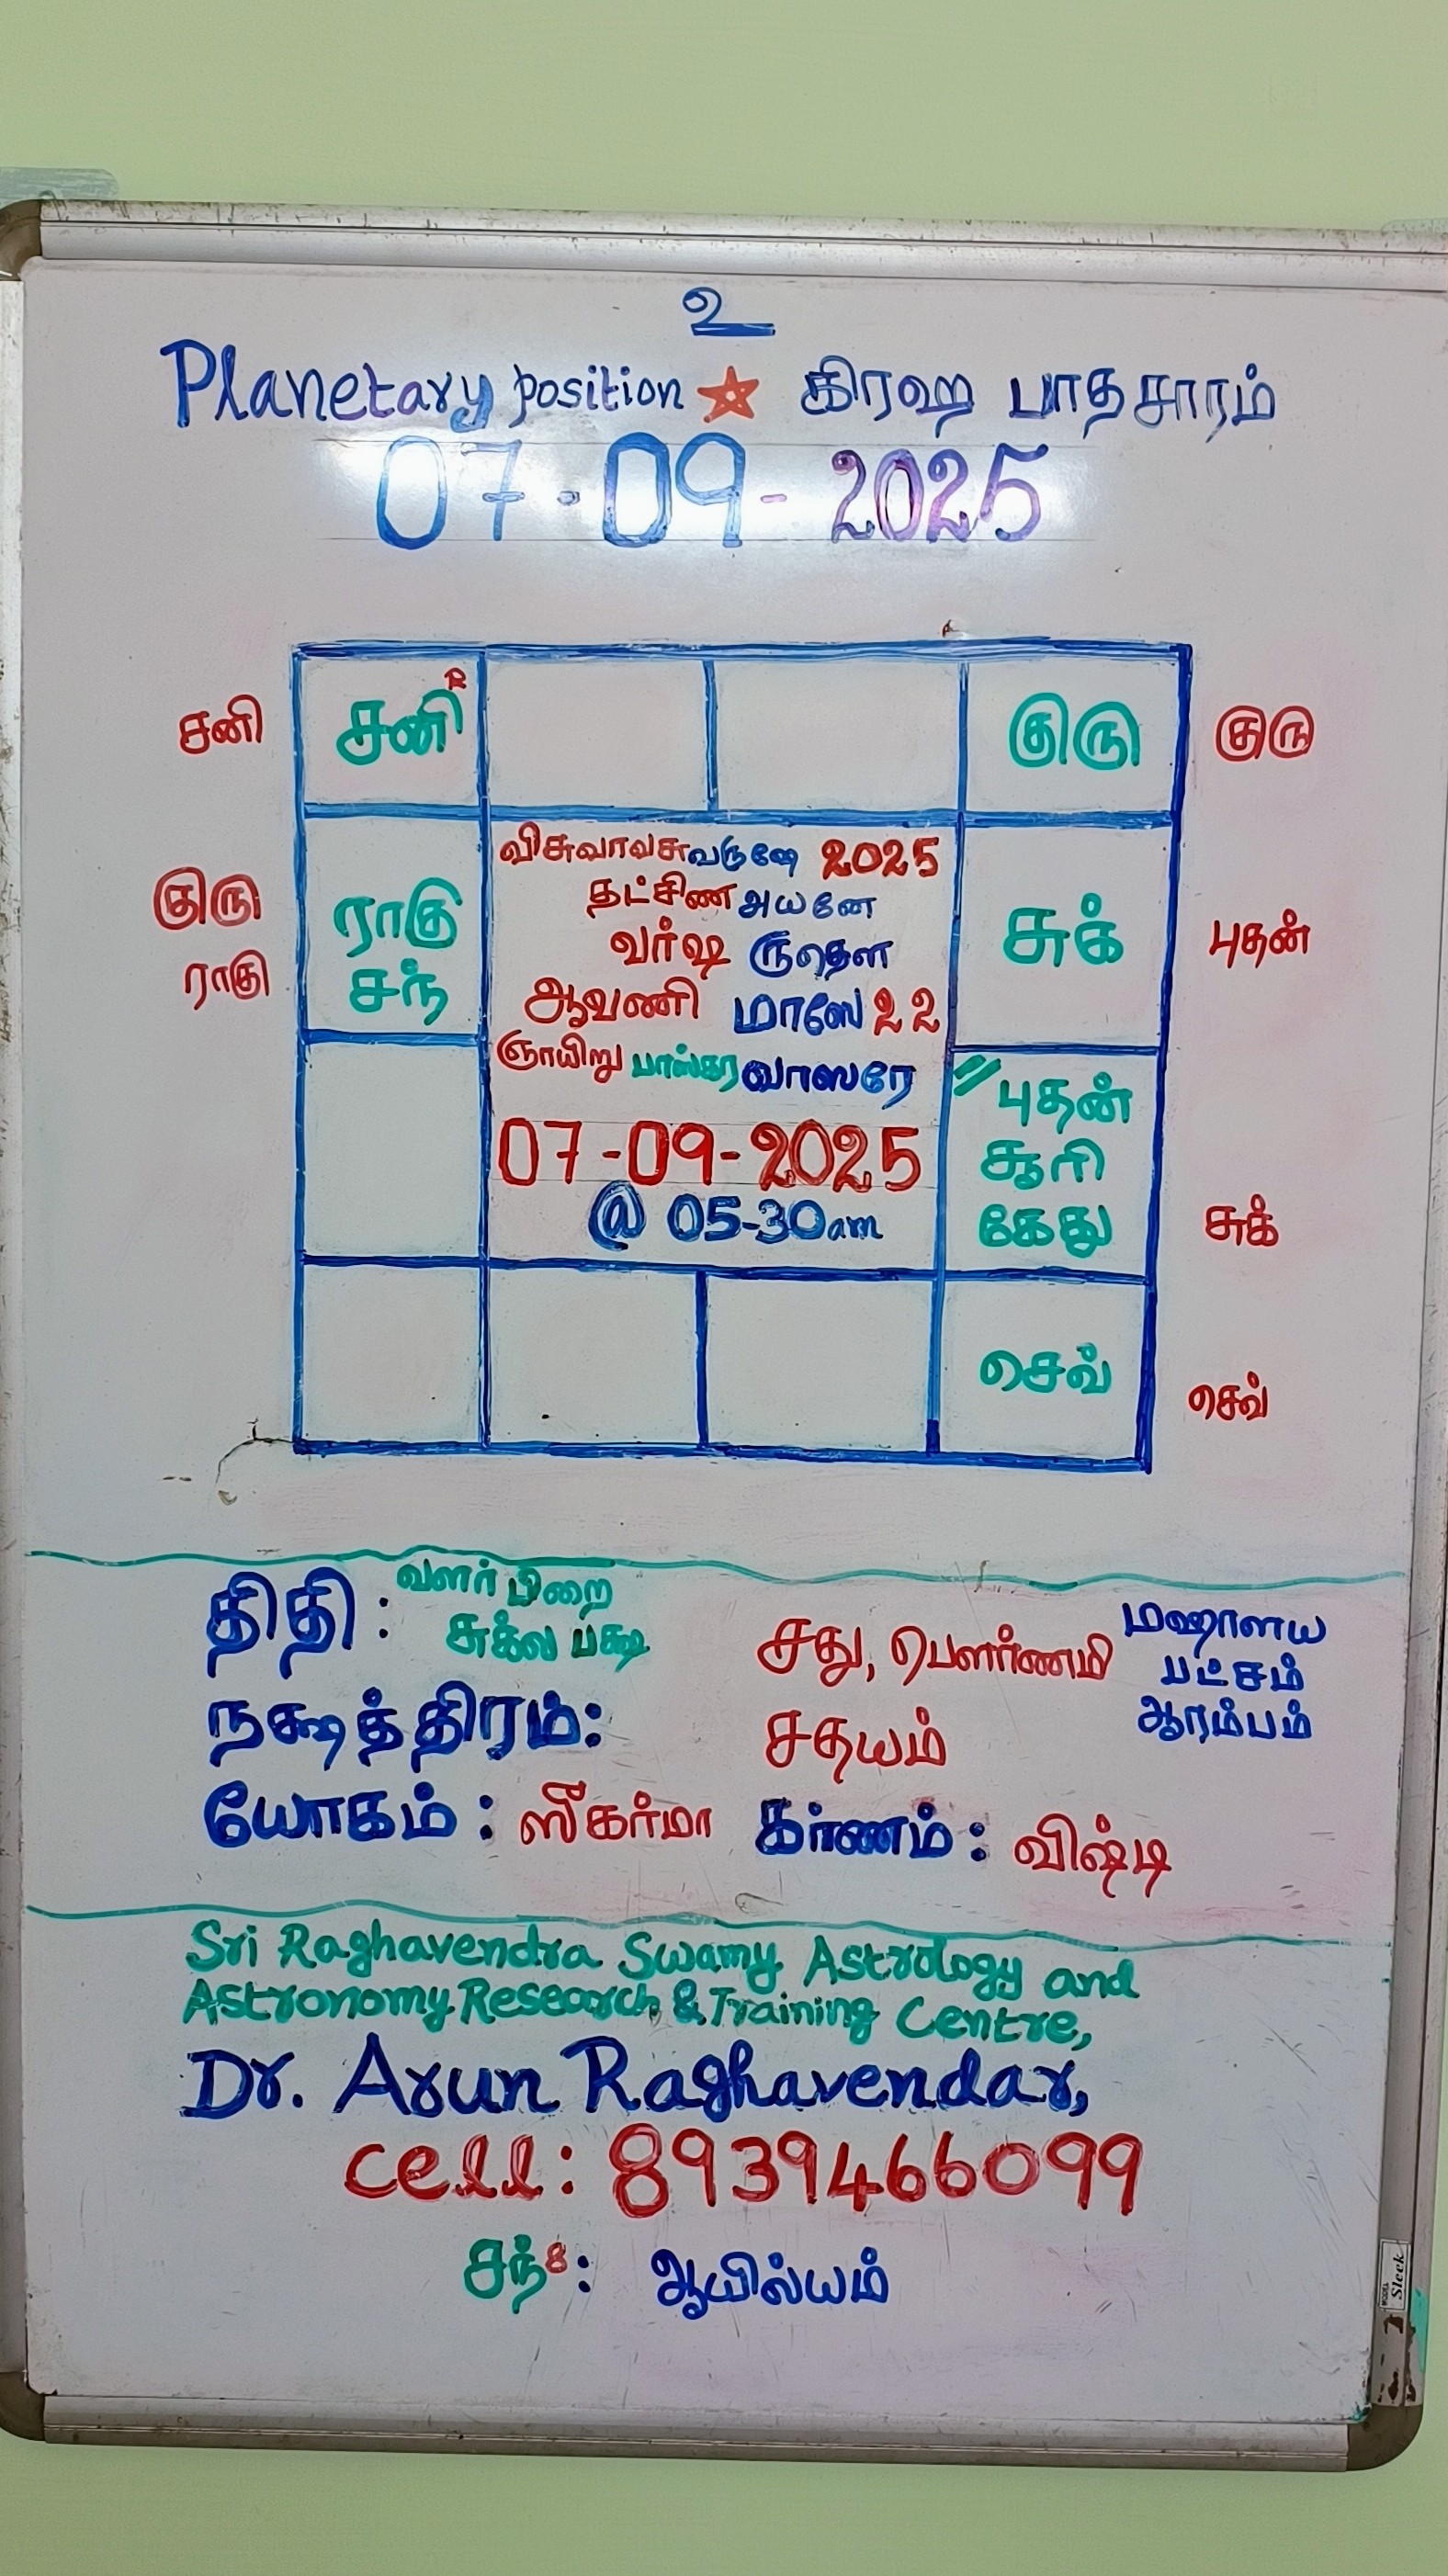 உ
Planetary position கிரஹ பாதசாரம்
07-09-2025
சனி சனி R குரு குரு
விசுவாவசு வருஷே 2025
தட்சிண அயனே
வர்ஷ ருதௌ
ஆவணி மாஸே 22
ஞாயிறு பாஸ்கர வாஸரே
07-09-2025
@ 05-30am
குரு
ராகு
ராகு
சந்
சுக் புதன்
புதன்
சூரி
கேது
சுக்
செவ் செவ்
திதி: வளர் பிறை
சுக்ல பக்ஷ
சது, பௌர்ணமி
மஹாளய
பட்சம்
ஆரம்பம்
நக்ஷத்திரம்: சதயம்
யோகம்: ஸீகர்மா கர்ணம்: விஷ்டி
Sri Raghavendra Swamy Astrology and
Astronomy Research & Training Centre,
Dr. Arun Raghavendar,
cell: 8939466099
சந் 8: ஆயில்யம்
Sleek